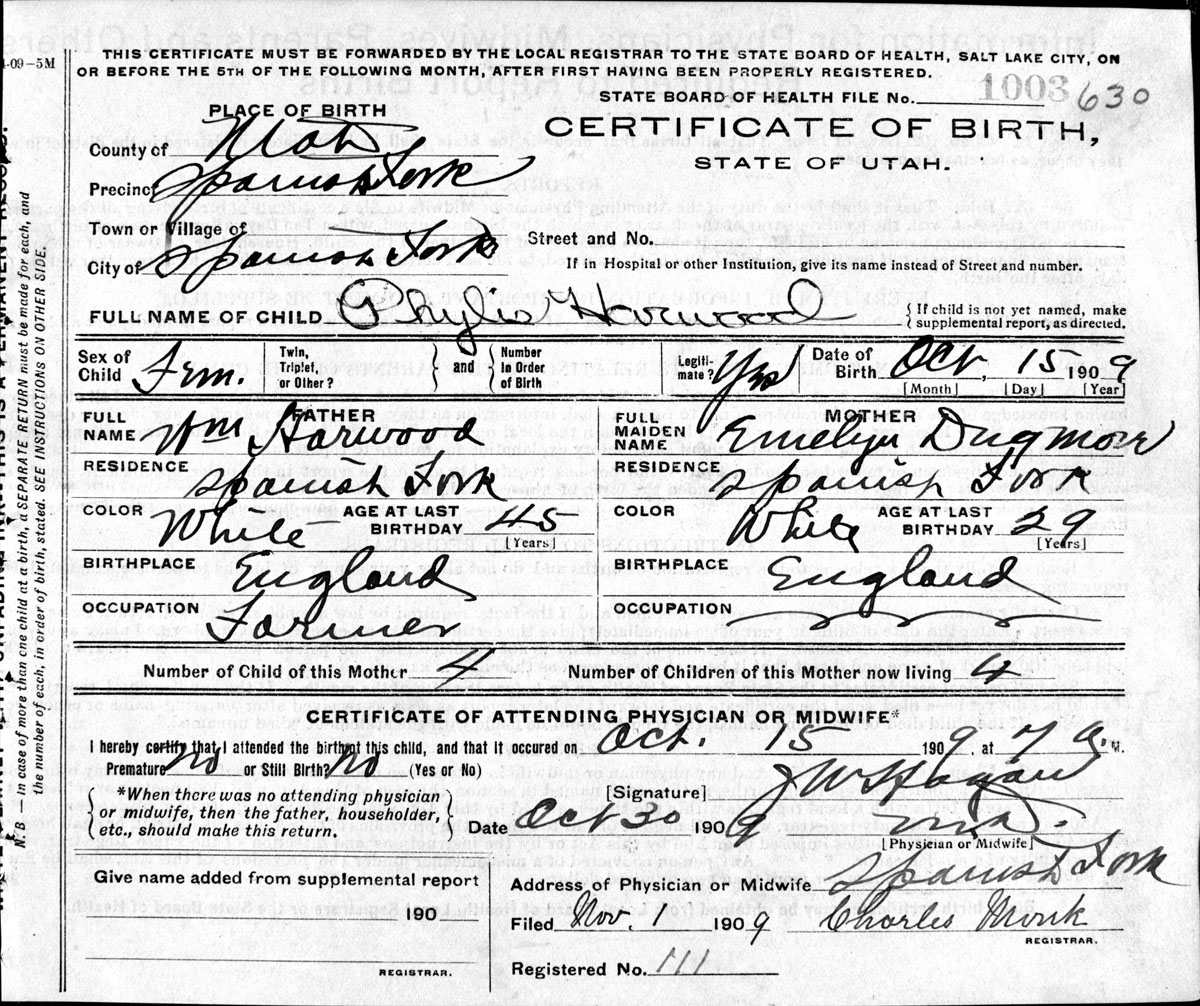 1-09-5M
THIS CERTIFICATE MUST BE FORWARDED BY THE LOCAL REGISTRAR TO THE STATE BOARD OF HEALTH, SALT LAKE CITY, ON
OR BEFORE THE 5TH OF THE FOLLOWING MONTH, AFTER FIRST HAVING BEEN PROPERLY REGISTERED.
STATE BOARD OF HEALTH FILE No. 1003 630
PLACE OF BIRTH
CERTIFICATE OF BIRTH,
STATE OF UTAH.
County of Utah
Precinct Spanish Fork
Town or Village of
City of Spanish Fork
Street and No.
If in Hospital or other Institution, give its name instead of Street and number.
FULL NAME OF CHILD Phylis Harwood
{If child is not yet named, make
supplemental report, as directed.
Sex of Child Fem. Twin, Triplet, or Other? } and { Number in Order of Birth Legiti-mate? Yes Date of Birth Oct, 15 1909
[Month] [Day] [Year]
FATHER
FULL NAME Wm Harwood
RESIDENCE Spanish Fork
COLOR White AGE AT LAST BIRTHDAY 45
[Years]
BIRTHPLACE England
OCCUPATION Farmer
MOTHER
FULL MAIDEN NAME Emelyn Dugmore
RESIDENCE Spanish Fork
COLOR White AGE AT LAST BIRTHDAY 29
[Years]
BIRTHPLACE England
OCCUPATION
Number of Child of this Mother 4 Number of Children of this Mother now living 4
CERTIFICATE OF ATTENDING PHYSICIAN OR MIDWIFE*
I hereby certify that I attended the birth of this child, and that it occured on Oct. 15 1909, at 7 A. M.
Premature No or Still Birth? No (Yes or No)
*When there was no attending physician
or midwife, then the father, householder,
etc., should make this return.
[Signature] J W Hagan
Date Oct 30 1909 M.D.
[Physician or Midwife]
Give name added from supplemental report
190
REGISTRAR.
Address of Physician or Midwife Spanish Fork
Filed Nov. 1 1909 Charles Monk
REGISTRAR.
Registered No. 111
N. B. — In case of more than one child at a birth, a SEPARATE RETURN must be made for each, and
the number of each, in order of birth, stated. SEE INSTRUCTIONS ON OTHER SIDE.